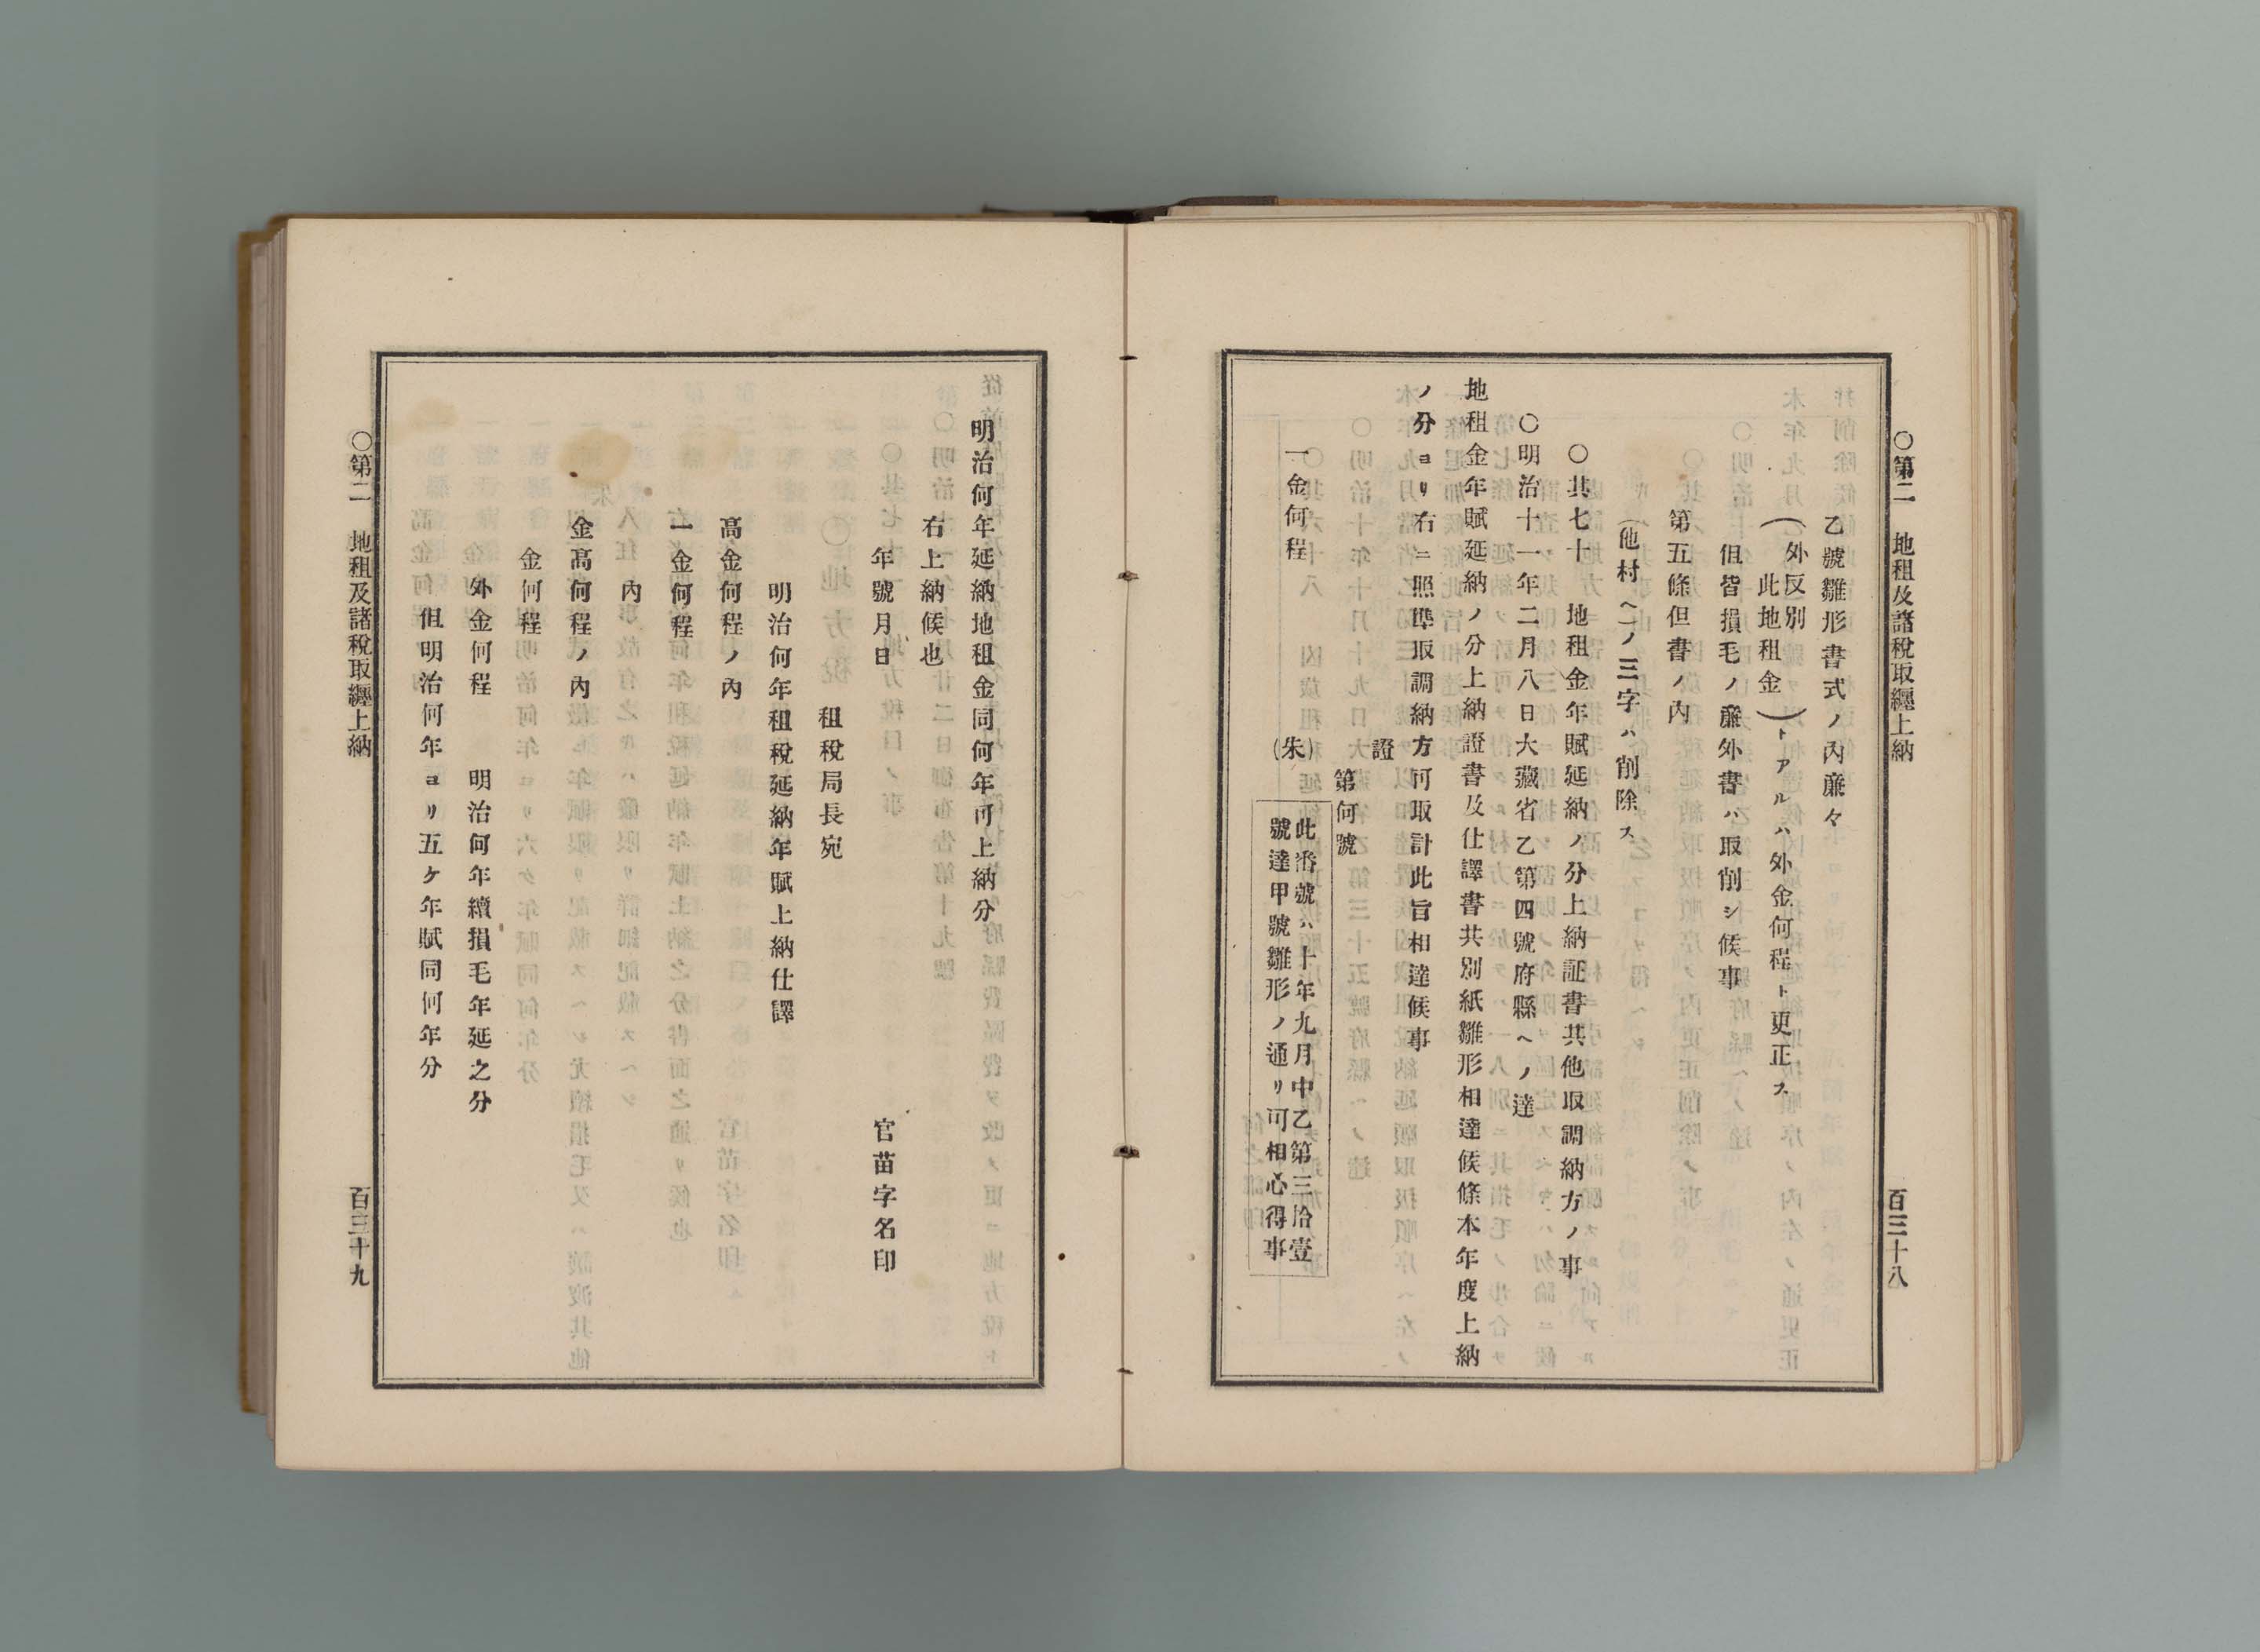 ○第二　地租及諸稅取纒上納　百三十八
乙號雛形書式ノ內廉々
（外反別
此地租金）トアルハ外金何程ト更正ス
但皆損毛ノ廉外書ハ取削シ候事
第五條但書ノ內
（他村へ）ノ三字ハ削除ス
○其七十　地租金年賦延納ノ分上納証書其他取調納方ノ事
○明治十一年二月八日大藏省乙第四號府縣へノ達
地租金年賦延納ノ分上納證書及仕譯書共別紙雛形相達候條本年度上納
ノ分ヨリ右ニ照準取調納方可取計此旨相達候事
證
第何號
（朱）
此番號ハ十年九月中乙第三拾壹
號達甲號雛形ノ通リ可相心得事
一金何程
明治何年延納地租金同何年可上納分
右上納候也
年號月日　官苗字名印
租稅局長宛
明治何年租稅延納年賦上納仕譯
高金何程ノ內
一金何程
內
金高何程ノ內
金何程
外金何程　明治何年續損毛年延之分
但明治何年ヨリ五ケ年賦同何年分
○第二　地租及諸稅取纒上納　百三十九